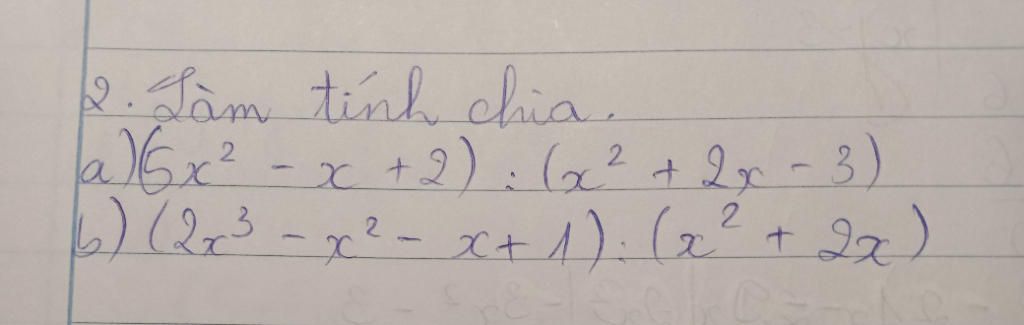 2. Làm tính chia.
a) (5x² - x + 2) : (x² + 2x - 3)
b) (2x³ - x² - x + 1) : (x² + 2x)